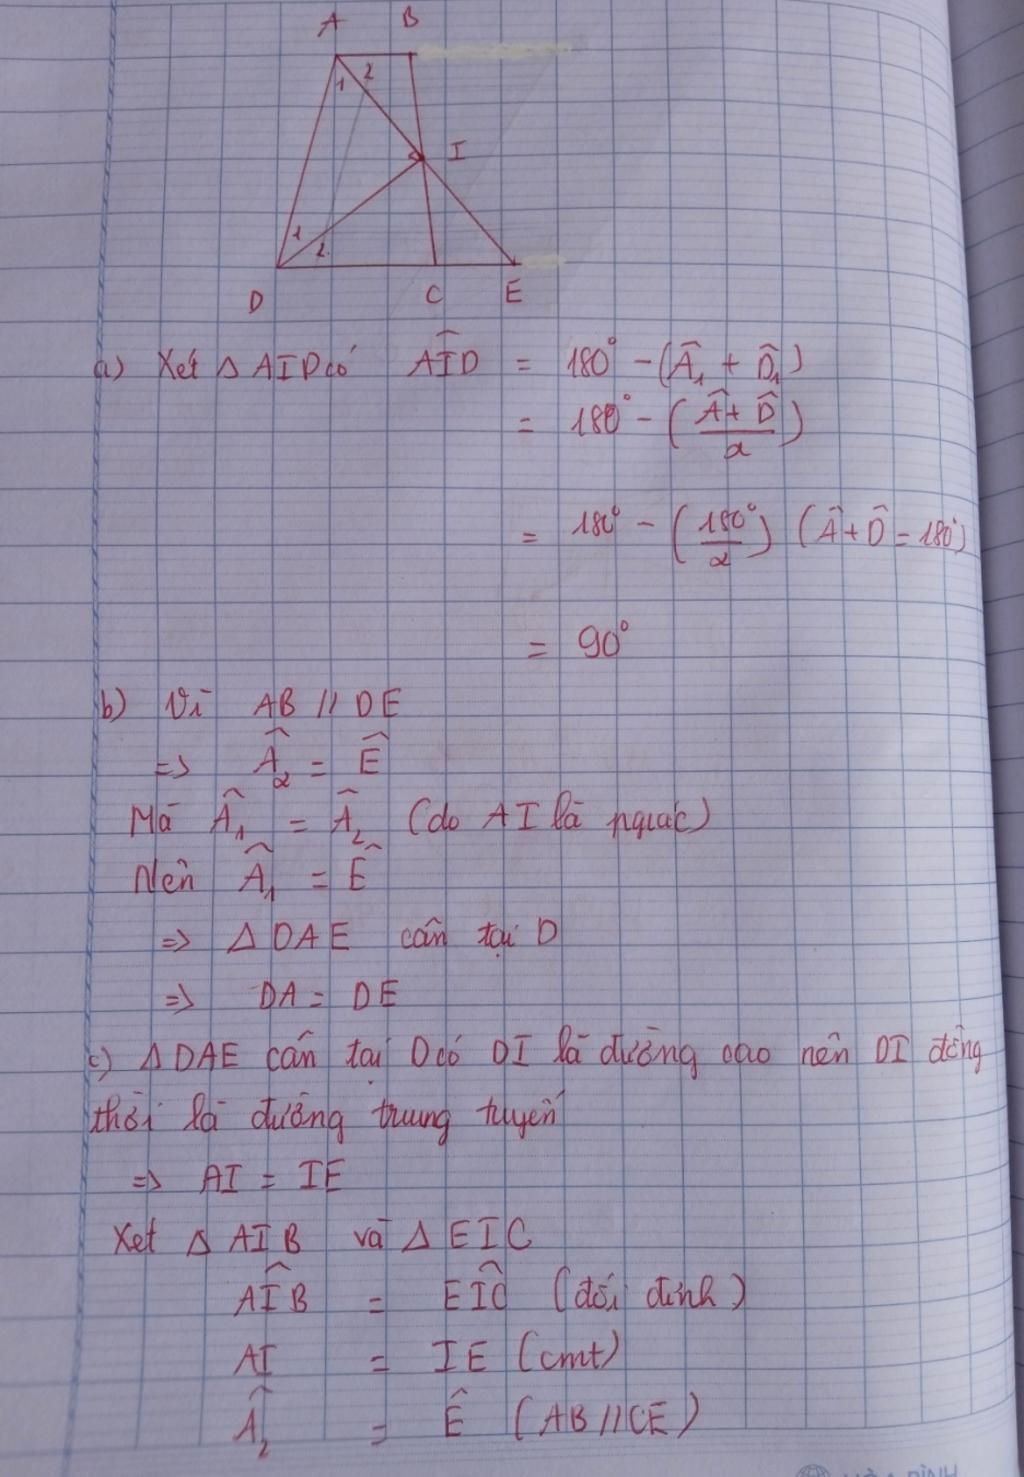 A B
1 2
I
1
2
D C E
a) Xét Δ AID có AID̂ = 180° - (Â₁ + D̂₁)
= 180° - (Â + D̂ / 2)
= 180° - (180° / 2) (Â + D̂ = 180°)
= 90°
b) Vì AB // DE
=> Â₂ = Ê
Mà Â₁ = Â₂ (do AI là pgiác)
Nên Â₁ = Ê
=> Δ DAE cân tại D
=> DA = DE
c) Δ DAE cân tại D có DI là đường cao nên DI đồng
thời là đường trung tuyến
=> AI = IE
Xét Δ AIB và Δ EIC
AÎB = EÎC (đối đỉnh)
AI = IE (cmt)
Â₂ = Ê (AB // CE)